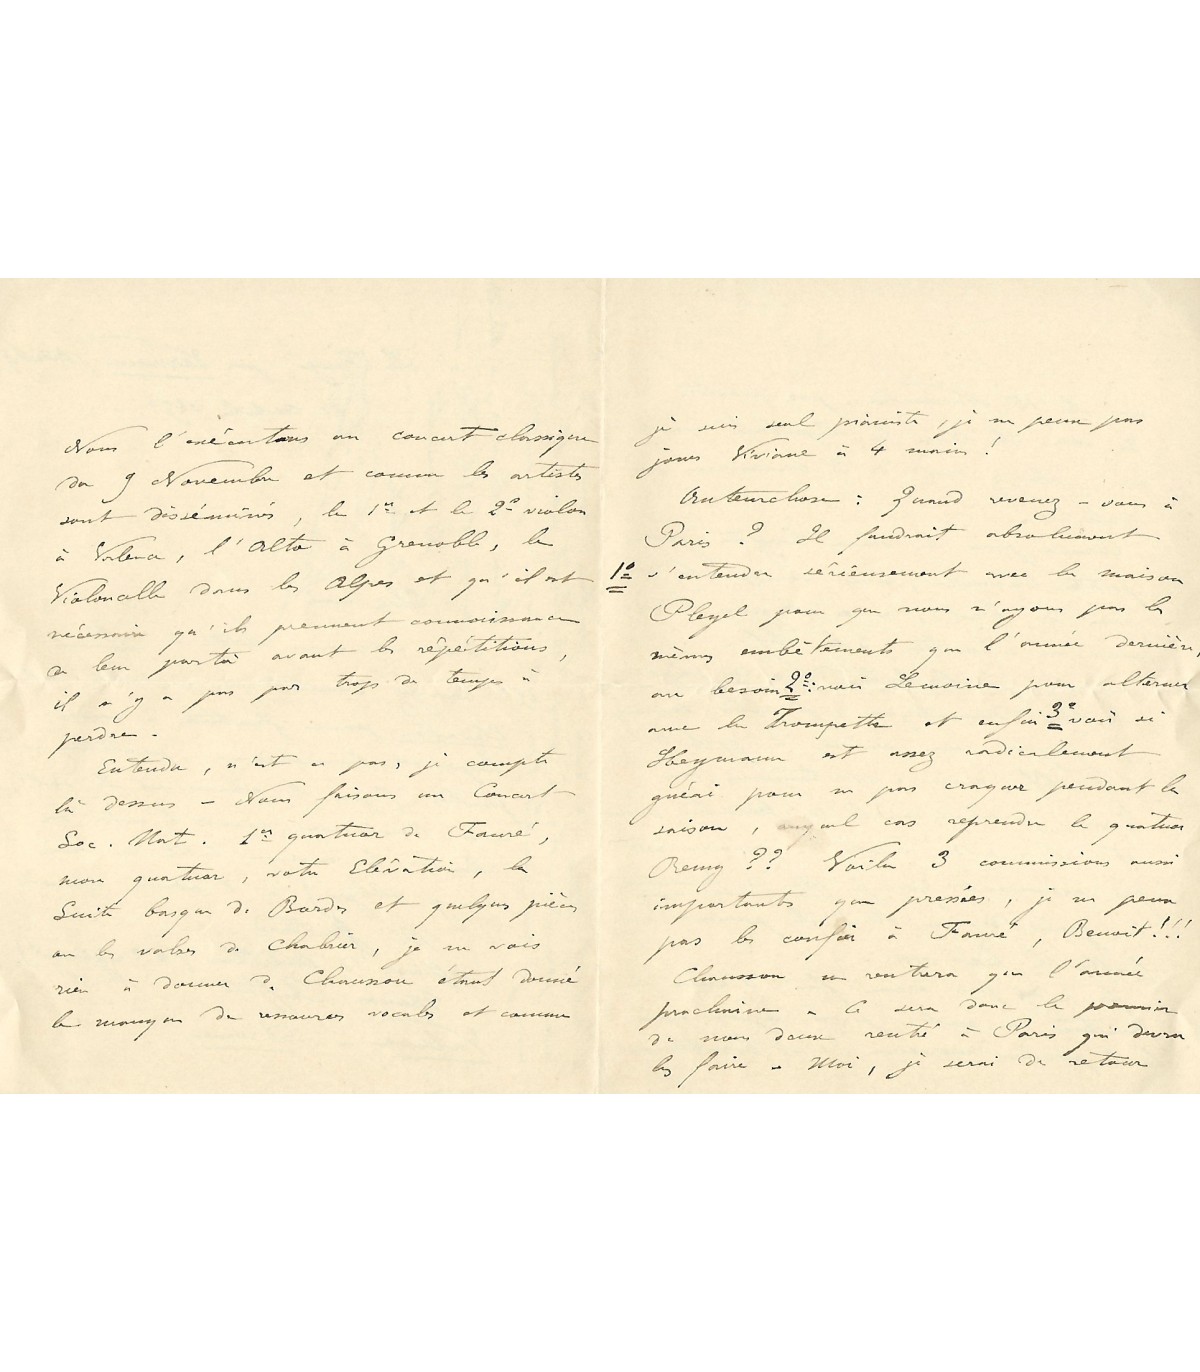 Nous l'exécutons au concert classique
du 9 Novembre et comme les artistes
sont disséminés, le 1er et le 2d violon
à Valence, l'Alto à Grenoble, le
Violoncelle dans les Alpes et qu'il est
nécessaire qu'ils prennent connaissance
de leur partie avant les répétitions,
il n'y a pas par trop de temps à
perdre -
Entendu, n'est ce pas, je compte
là dessus - Nous faisons un Concert
Soc. Nat. 1er quatuor de Fauré,
mon quatuor, votre Elévation, la
Suite basque de Bordes et quelques pièces
ou les valses de Chabrier, je ne vois
rien à donner de Chausson étant donné
le manque de ressources vocales et comme
je suis seul pianiste, je ne peux pas
jouer Viviane à 4 mains!
Autrechose : Quand revenez-vous à
Paris ? Il faudrait absolument
1° s'entendre sérieusement avec la maison
Pleyel pour que nous n'ayons pas les
mêmes embêtements que l'année dernière,
au besoin 2°: voir Lemoine pour alterner
avec la Trompette et enfin 3° voir si
Heymann est assez radicalement
guéri pour ne pas craquer pendant la
saison, auquel cas reprendre le quatuor
Remy ?? Voilà 3 commissions aussi
importantes que pressées, je ne peux
pas les confier à Fauré, Benoit!!!
Chausson ne rentrera que l'année
prochaine - Ce sera donc le premier
de nous deux rentré à Paris qui devra
les faire - Moi, je serai de retour